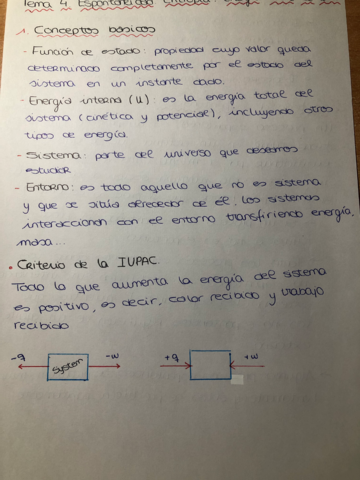 Tema 4 Espontaneidad
1. Conceptos básicos
- Función de estado: propiedad cuyo valor queda
determinado completamente por el estado del
sistema en un instante dado.
- Energía interna (U): es la energía total del
sistema (cinética y potencial), incluyendo otros
tipos de energía.
- Sistema: parte del universo que deseamos
estudiar
- Entorno: es todo aquello que no es sistema
y que se sitúa alrededor de él. los sistemas
interaccionan con el entorno transfiriendo energía,
masa...
• Criterio de la IUPAC.
Todo lo que aumenta la energía del sistema
es positivo, es decir, calor recibido y trabajo
recibido
-q system -w +q +w